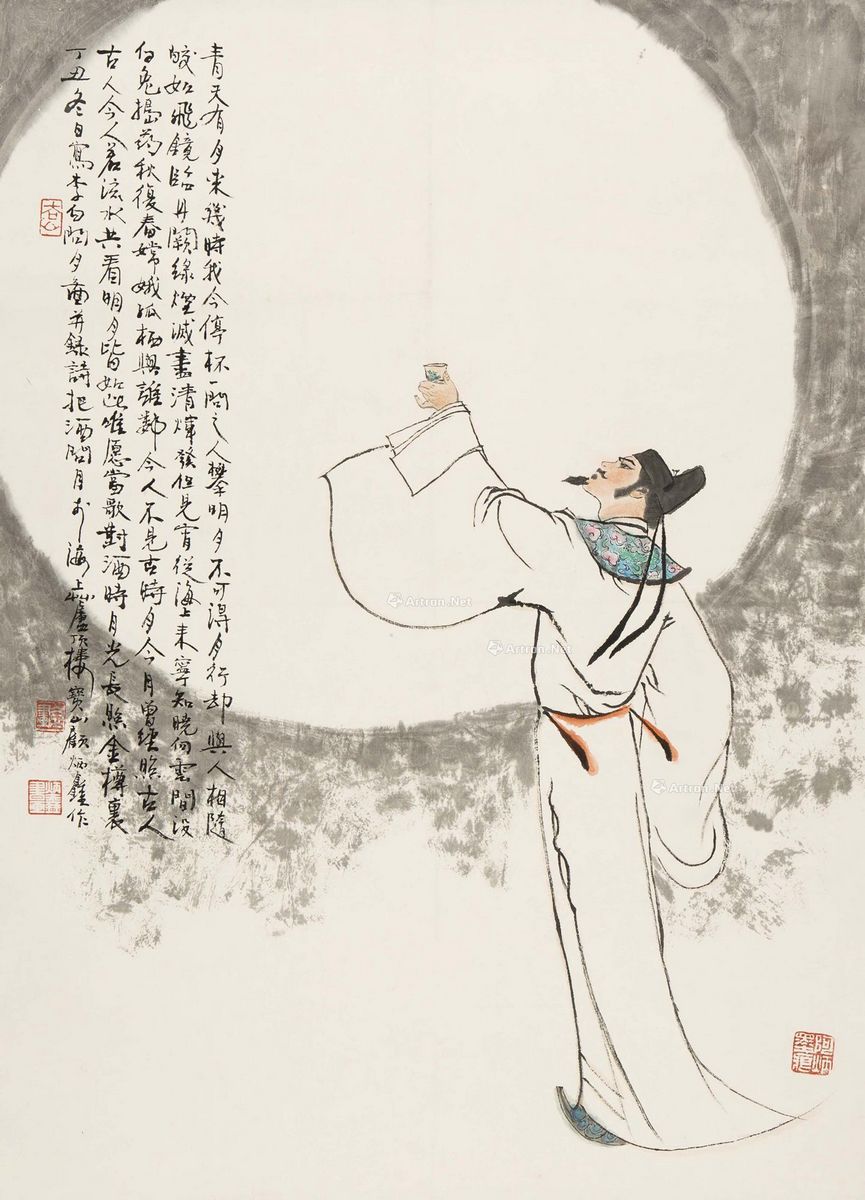 青天有月来幾時我今停杯一問之人攀明月不可得月行却與人相隨
皎如飛鏡臨丹闕綠煙滅盡清輝發但見宵從海上来寧知曉向雲間没
白兔搗藥秋復春嫦娥孤栖與誰鄰今人不見古時月今月曾經照古人
古人今人若流水共看明月皆如此唯愿當歌對酒時月光長照金樽裏
丁丑冬日寫李白問月圖并錄詩把酒問月於海上樓寶山顧炳鑫作
Artron.Net
Artron.Net
Artron.Net